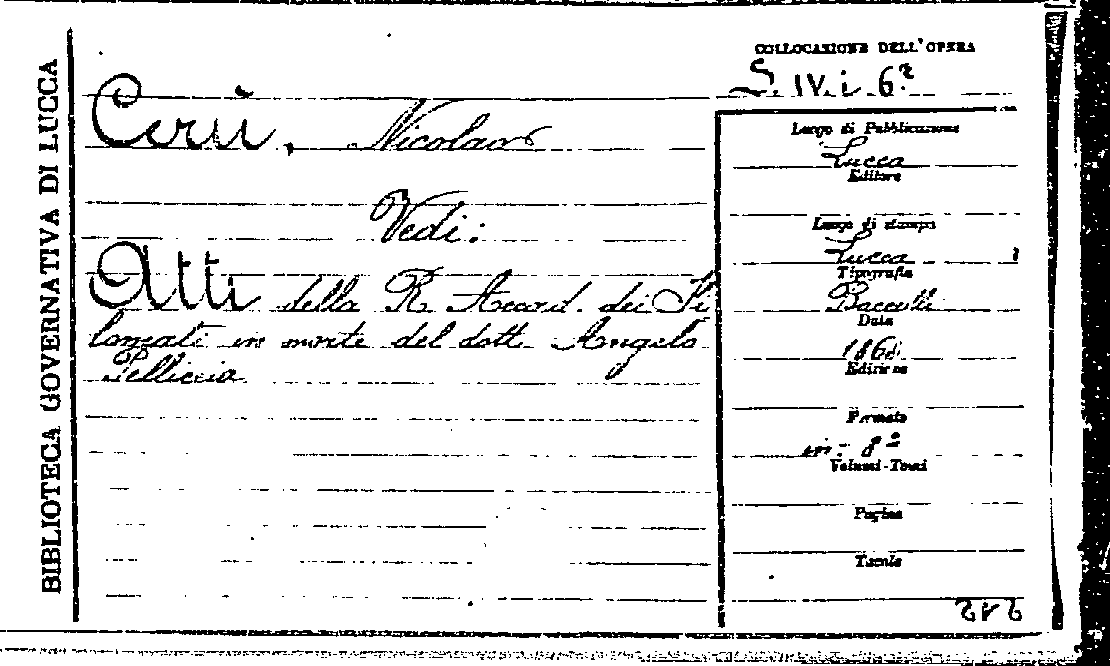 BIBLIOTECA GOVERNATIVA DI LUCCA
COLLOCAZIONE DELL'OPERA
S. IV. i. 6²
Cerù, Nicolao
Vedi:
Atti della R. Accad. dei Fi
lomati in morte del dott. Angelo
Pelliccia
Luogo di Pubblicazione
Lucca
Editore
Luogo di stampa
Lucca
Tipografia
Data
1868
Edizione
Formato
in-8º
Volumi-Tomi
Pagine
Tavole